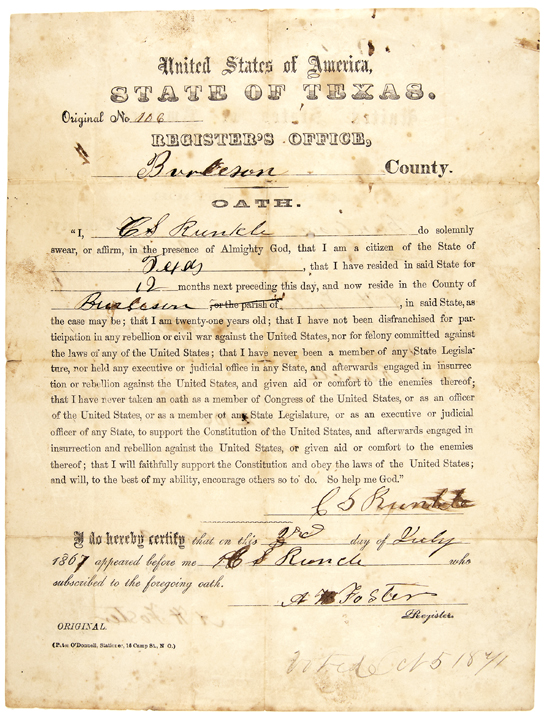 United States of America,
STATE OF TEXAS.
Original No. 106
REGISTER'S OFFICE,
Burleson County.
OATH.
"I, C S Runkle do solemnly
swear, or affirm, in the presence of Almighty God, that I am a citizen of the State of
Texas, that I have resided in said State for
12 months next preceding this day, and now reside in the County of
Burleson (or the parish of, in said State, as
the case may be; that I am twenty-one years old; that I have not been disfranchised for par-
ticipation in any rebellion or civil war against the United States, nor for felony committed against
the laws of any of the United States; that I have never been a member of any State Legisla-
ture, nor held any executive or judicial office in any State, and afterwards engaged in insurrec
tion or rebellion against the United States, and given aid or comfort to the enemies thereof;
that I have never taken an oath as a member of Congress of the United States, or as an officer
of the United States, or as a member of any State Legislature, or as an executive or judicial
officer of any State, to support the Constitution of the United States, and afterwards engaged in
insurrection and rebellion against the United States, or given aid or comfort to the enemies
thereof; that I will faithfully support the Constitution and obey the laws of the United States;
and will, to the best of my ability, encourage others so to do. So help me God."
C S Runkle
I do hereby certify that on this 3rd day of July
1867 appeared before me C S Runcle who
subscribed to the foregoing oath.
A H Foster
Register.
ORIGINAL.
(Peter O'Donnell, Stationer, 16 Camp St., N O.)
Voted Oct 5 1871